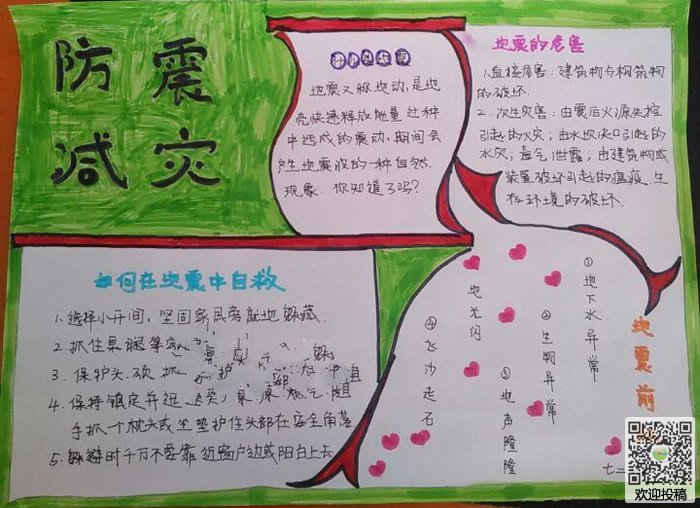 防震
减灾
什么是地震
地震又称地动,是地
壳快速释放能量过程
中造成的震动,期间会
产生地震波的一种自然
现象。你知道了吗?
地震的危害
1.直接危害:建筑物与构筑物
的破坏.
2.次生灾害:由震后火源失控
引起的火灾;由水坝决口引起的
水灾;毒气泄露;由建筑物或
装置破坏引起的瘟疫.生
存环境的破坏.
如何在地震中自救
1.选择小开间,坚固家具旁就地躲藏.
2.抓住桌腿等
3.保护头.颈
4.保持镇定并迅
手抓一个枕头或坐垫护住头部在安全角落
5.躲避时千万不要靠近窗户边或阳台上去
地震前
①地下水异常
②生物异常
③地声隆隆
地光闪
④飞沙走石
七二
欢迎投稿